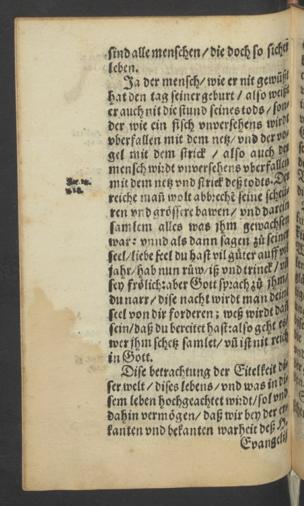 sind alle menschen / die doch so sicher
leben.
Ja der mensch / wie er nit gewüßt
hat den tag seiner geburt / also weißt
er auch nit die stund seines tods / son⸗
der wie ein fisch unversehens wirdt
vberfallen mit dem netz / vnd der vo⸗
gel mit dem strick / also auch der
mensch wirdt vnversehens vberfallen
mit dem netz vnd strick deß todts. Der
reiche mañ wolt abbrechẽ seine scheü⸗
ren vnd grössere bawen / vnd darein
samlem alles was jhm gewachsen
war: vnnd als dann sagen zů seiner
seel / liebe seel du hast vil gůter auff vil
jahr / hab nun růw / iß vnd trinck / vñ
sey frölich: aber Gott sprach zů jhm /
du narr / dise nacht wirdt man dein
seel von dir forderen; weß wirdt das
sein / daß du bereitet hast: also geht es /
wer jhm schetz samlet / vñ ist nit reich
in Gott.
Dise betrachtung der Eitelkeit di⸗
ser welt / dises lebens / vnd was in di⸗
sem leben hochgeachtet wirdt / sol vns
dahin vermögen / daß wir bey der er⸗
kanten vnd bekanten warheit deß
Evangelij